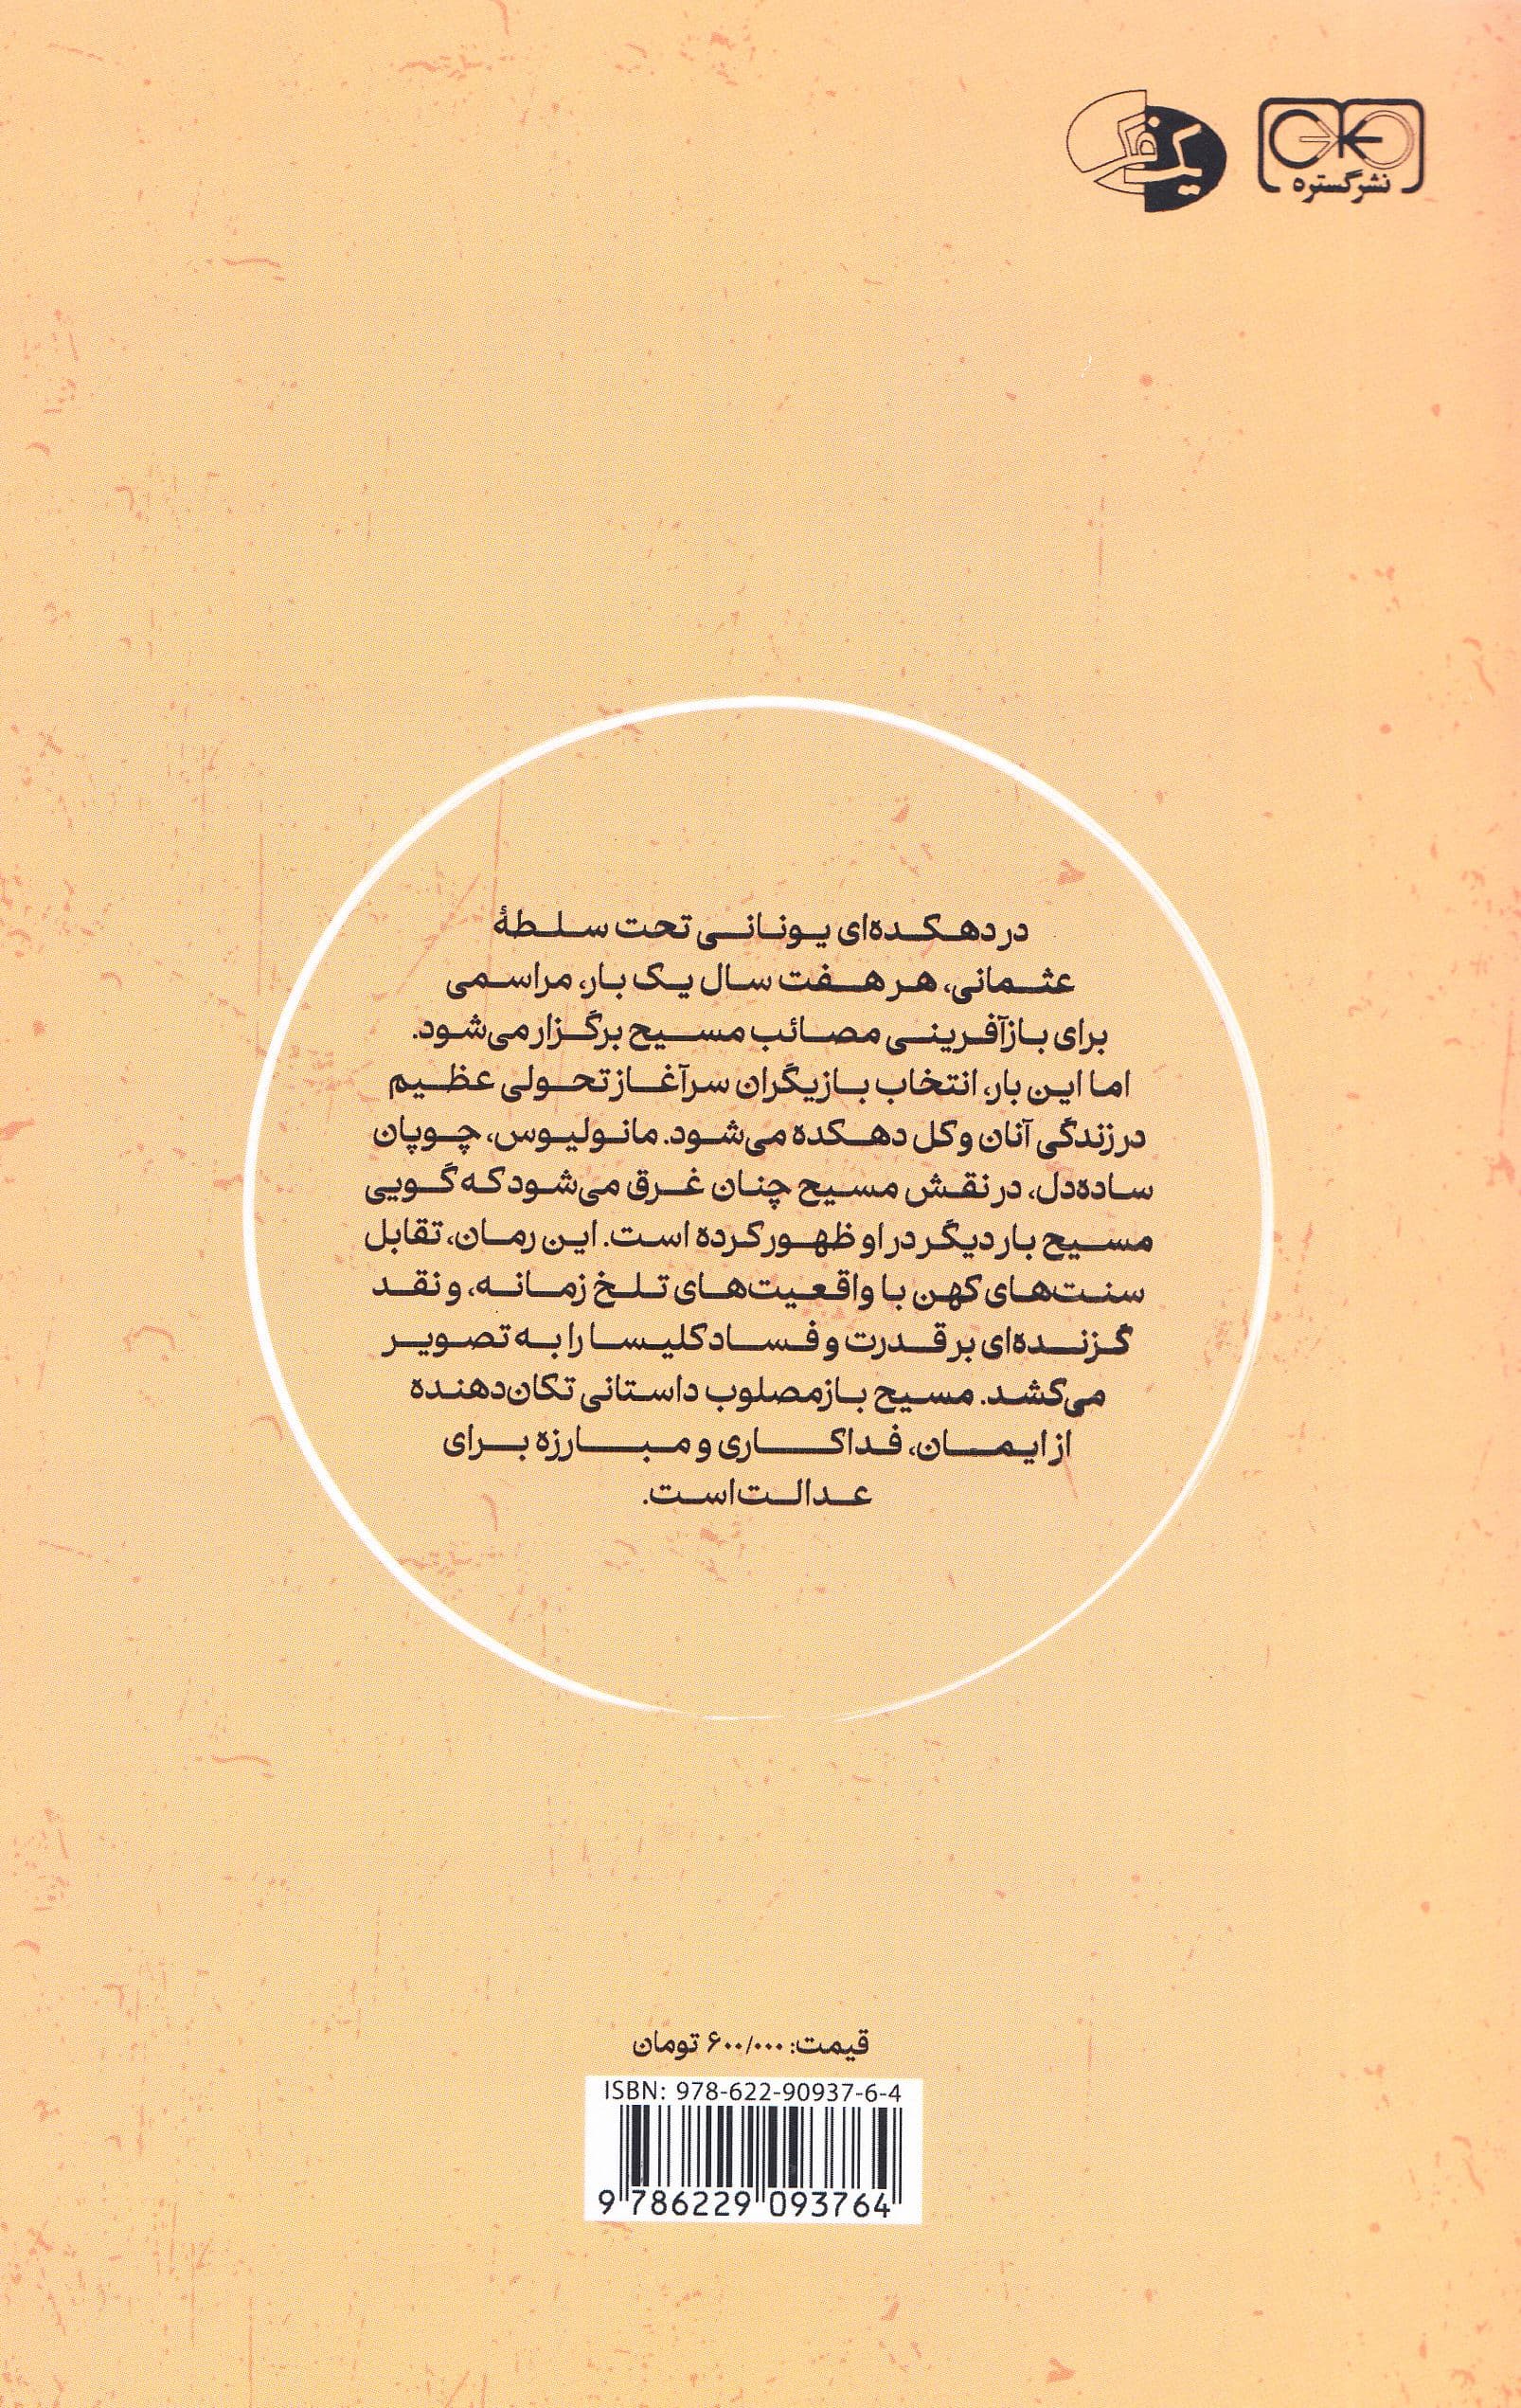 نشر گستره
در دهکده‌ای یونانی تحت سلطهٔ
عثمانی، هر هفت سال یک بار، مراسمی
برای بازآفرینی مصائب مسیح برگزار می‌شود.
اما این بار، انتخاب بازیگران سرآغاز تحولی عظیم
در زندگی آنان و کل دهکده می‌شود. مانولیوس، چوپان
ساده‌دل، در نقش مسیح چنان غرق می‌شود که گویی
مسیح بار دیگر در او ظهور کرده است. این رمان، تقابل
سنت‌های کهن با واقعیت‌های تلخ زمانه، و نقد
گزنده‌ای بر قدرت و فساد کلیسا را به تصویر
می‌کشد. مسیح بازمصلوب داستانی تکان‌دهنده
از ایمان، فداکاری و مبارزه برای
عدالت است.
قیمت: ۶۰۰/۰۰۰ تومان
ISBN: 978-622-90937-6-4
9 786229 093764